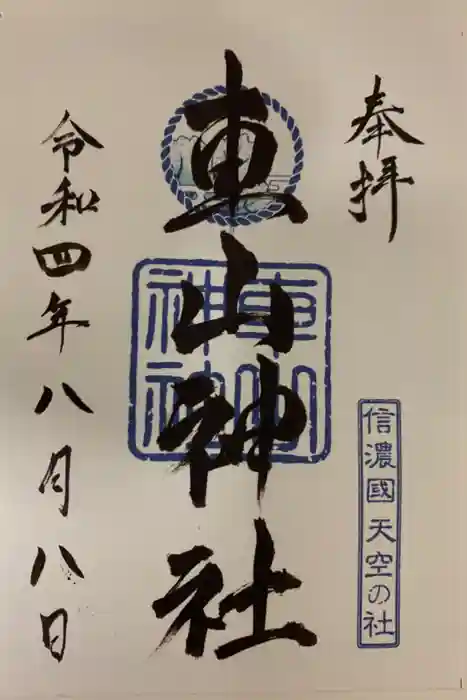 奉拝
信濃國天空の社
車山神社
車山
神社
令和四年八月八日